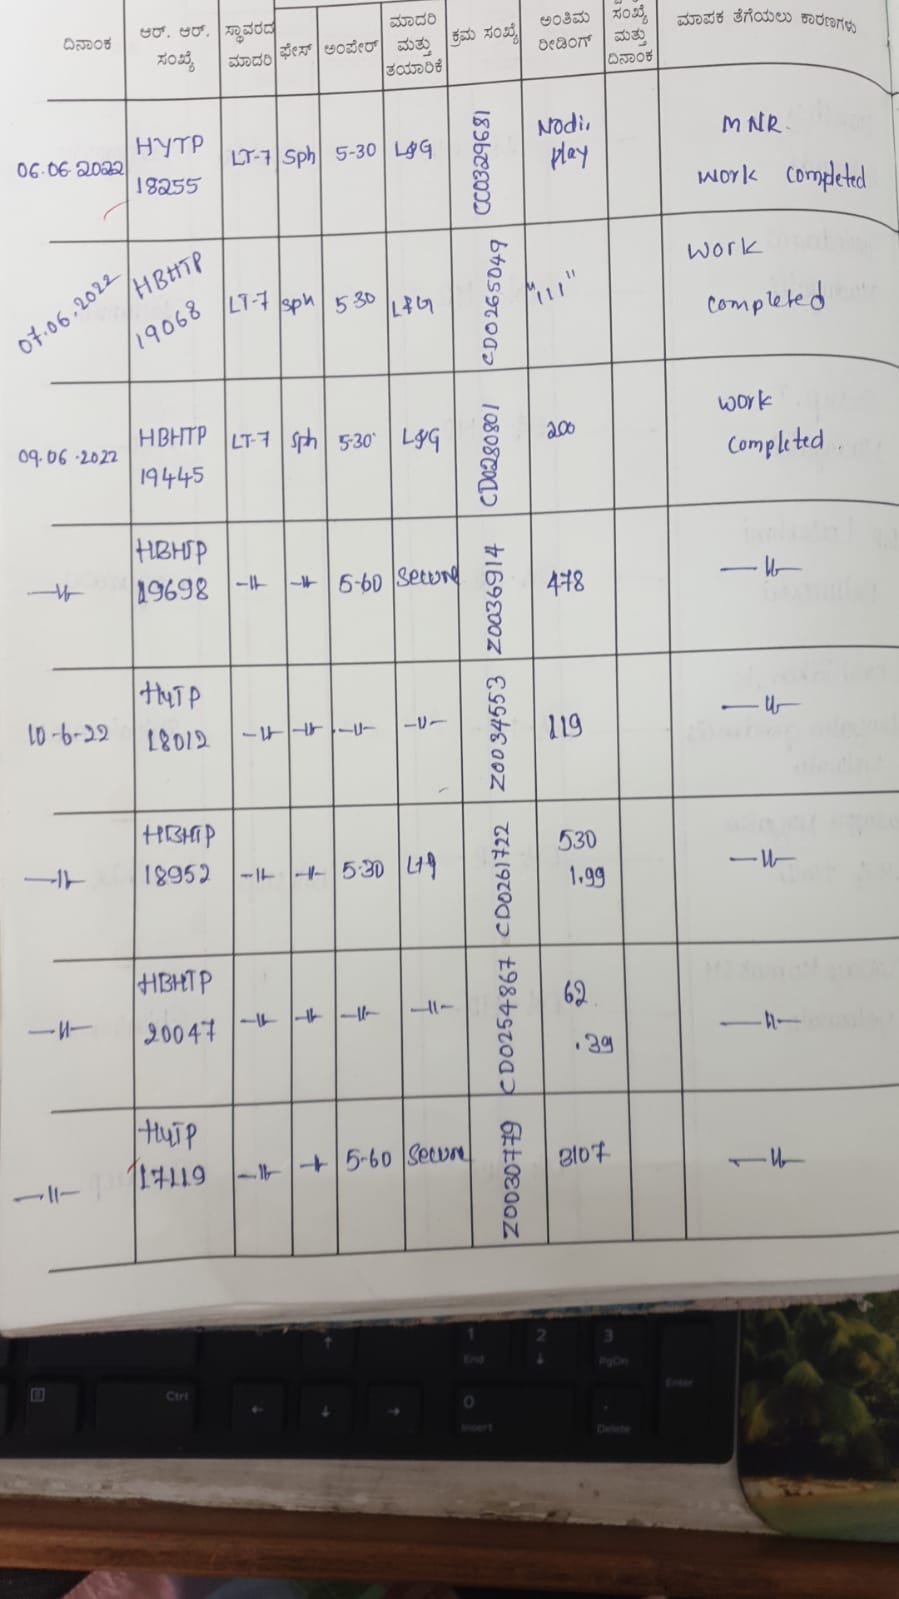 ದಿನಾಂಕ
ಆರ್. ಆರ್.
ಸಂಖ್ಯೆ
ಸ್ಥಾವರದ
ಮಾದರಿ
ಫೇಸ್
ಅಂಪೇರ್
ಮಾದರಿ
ಮತ್ತು
ತಯಾರಿಕೆ
ಕ್ರಮ ಸಂಖ್ಯೆ
ಅಂತಿಮ
ರೀಡಿಂಗ್
ಸಂಖ್ಯೆ
ಮತ್ತು
ದಿನಾಂಕ
ಮಾಪಕ ತೆಗೆಯಲು ಕಾರಣಗಳು
06.06.2022 HYTP 18255 LT-7 Sph 5-30 L&G CC0329681 Nodis play MNR. Work completed
07.06.2022 HBHTP 19068 LT-7 Sph 5-30 L&G CD0265049 "111" Work completed
09.06.2022 HBHTP 19445 LT-7 Sph 5-30 L&G CD0280801 200 Work completed.
—||— HBHTP 19698 —||— —||— 5-60 Secure Z0036914 478 —||—
10-6-22 HYTP 18012 —||— —||— —||— —||— Z0034553 119 —||—
—||— HBHTP 18952 —||— —||— 5-30 L&G CD0261722 530 1.99 —||—
—||— HBHTP 20047 —||— —||— —||— —||— CD0254867 62 .39 —||—
—||— HYTP 17119 —||— —||— 5-60 Secure Z0030779 3107 —||—
1
End
2
3
PgDn
Enter
Ctrl
0
Insert
.
Delete